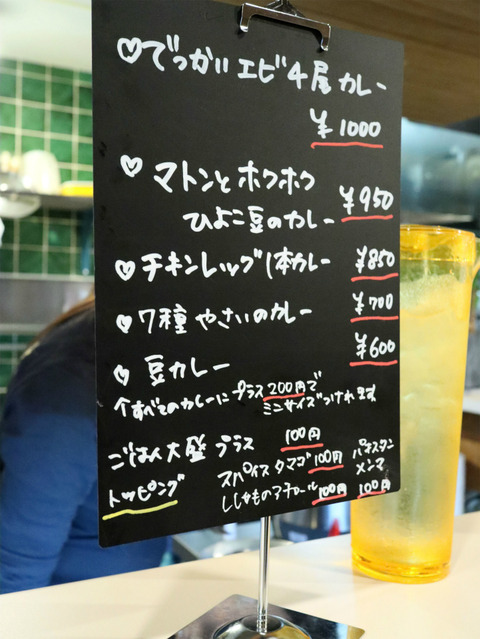 ♡でっかいエビ4尾カレー
¥1000
♡マトンとホクホク
ひよこ豆のカレー ¥950
♡チキンレッグ1本カレー ¥850
♡7種やさいのカレー ¥700
♡豆カレー ¥600
↑すべてのカレーにプラス200円で
ミニサイズつけれます
ごはん大盛プラス 100円
トッピング
スパイスタマゴ100円
ししゃものアチャール100円
パキスタン
メンマ
100円